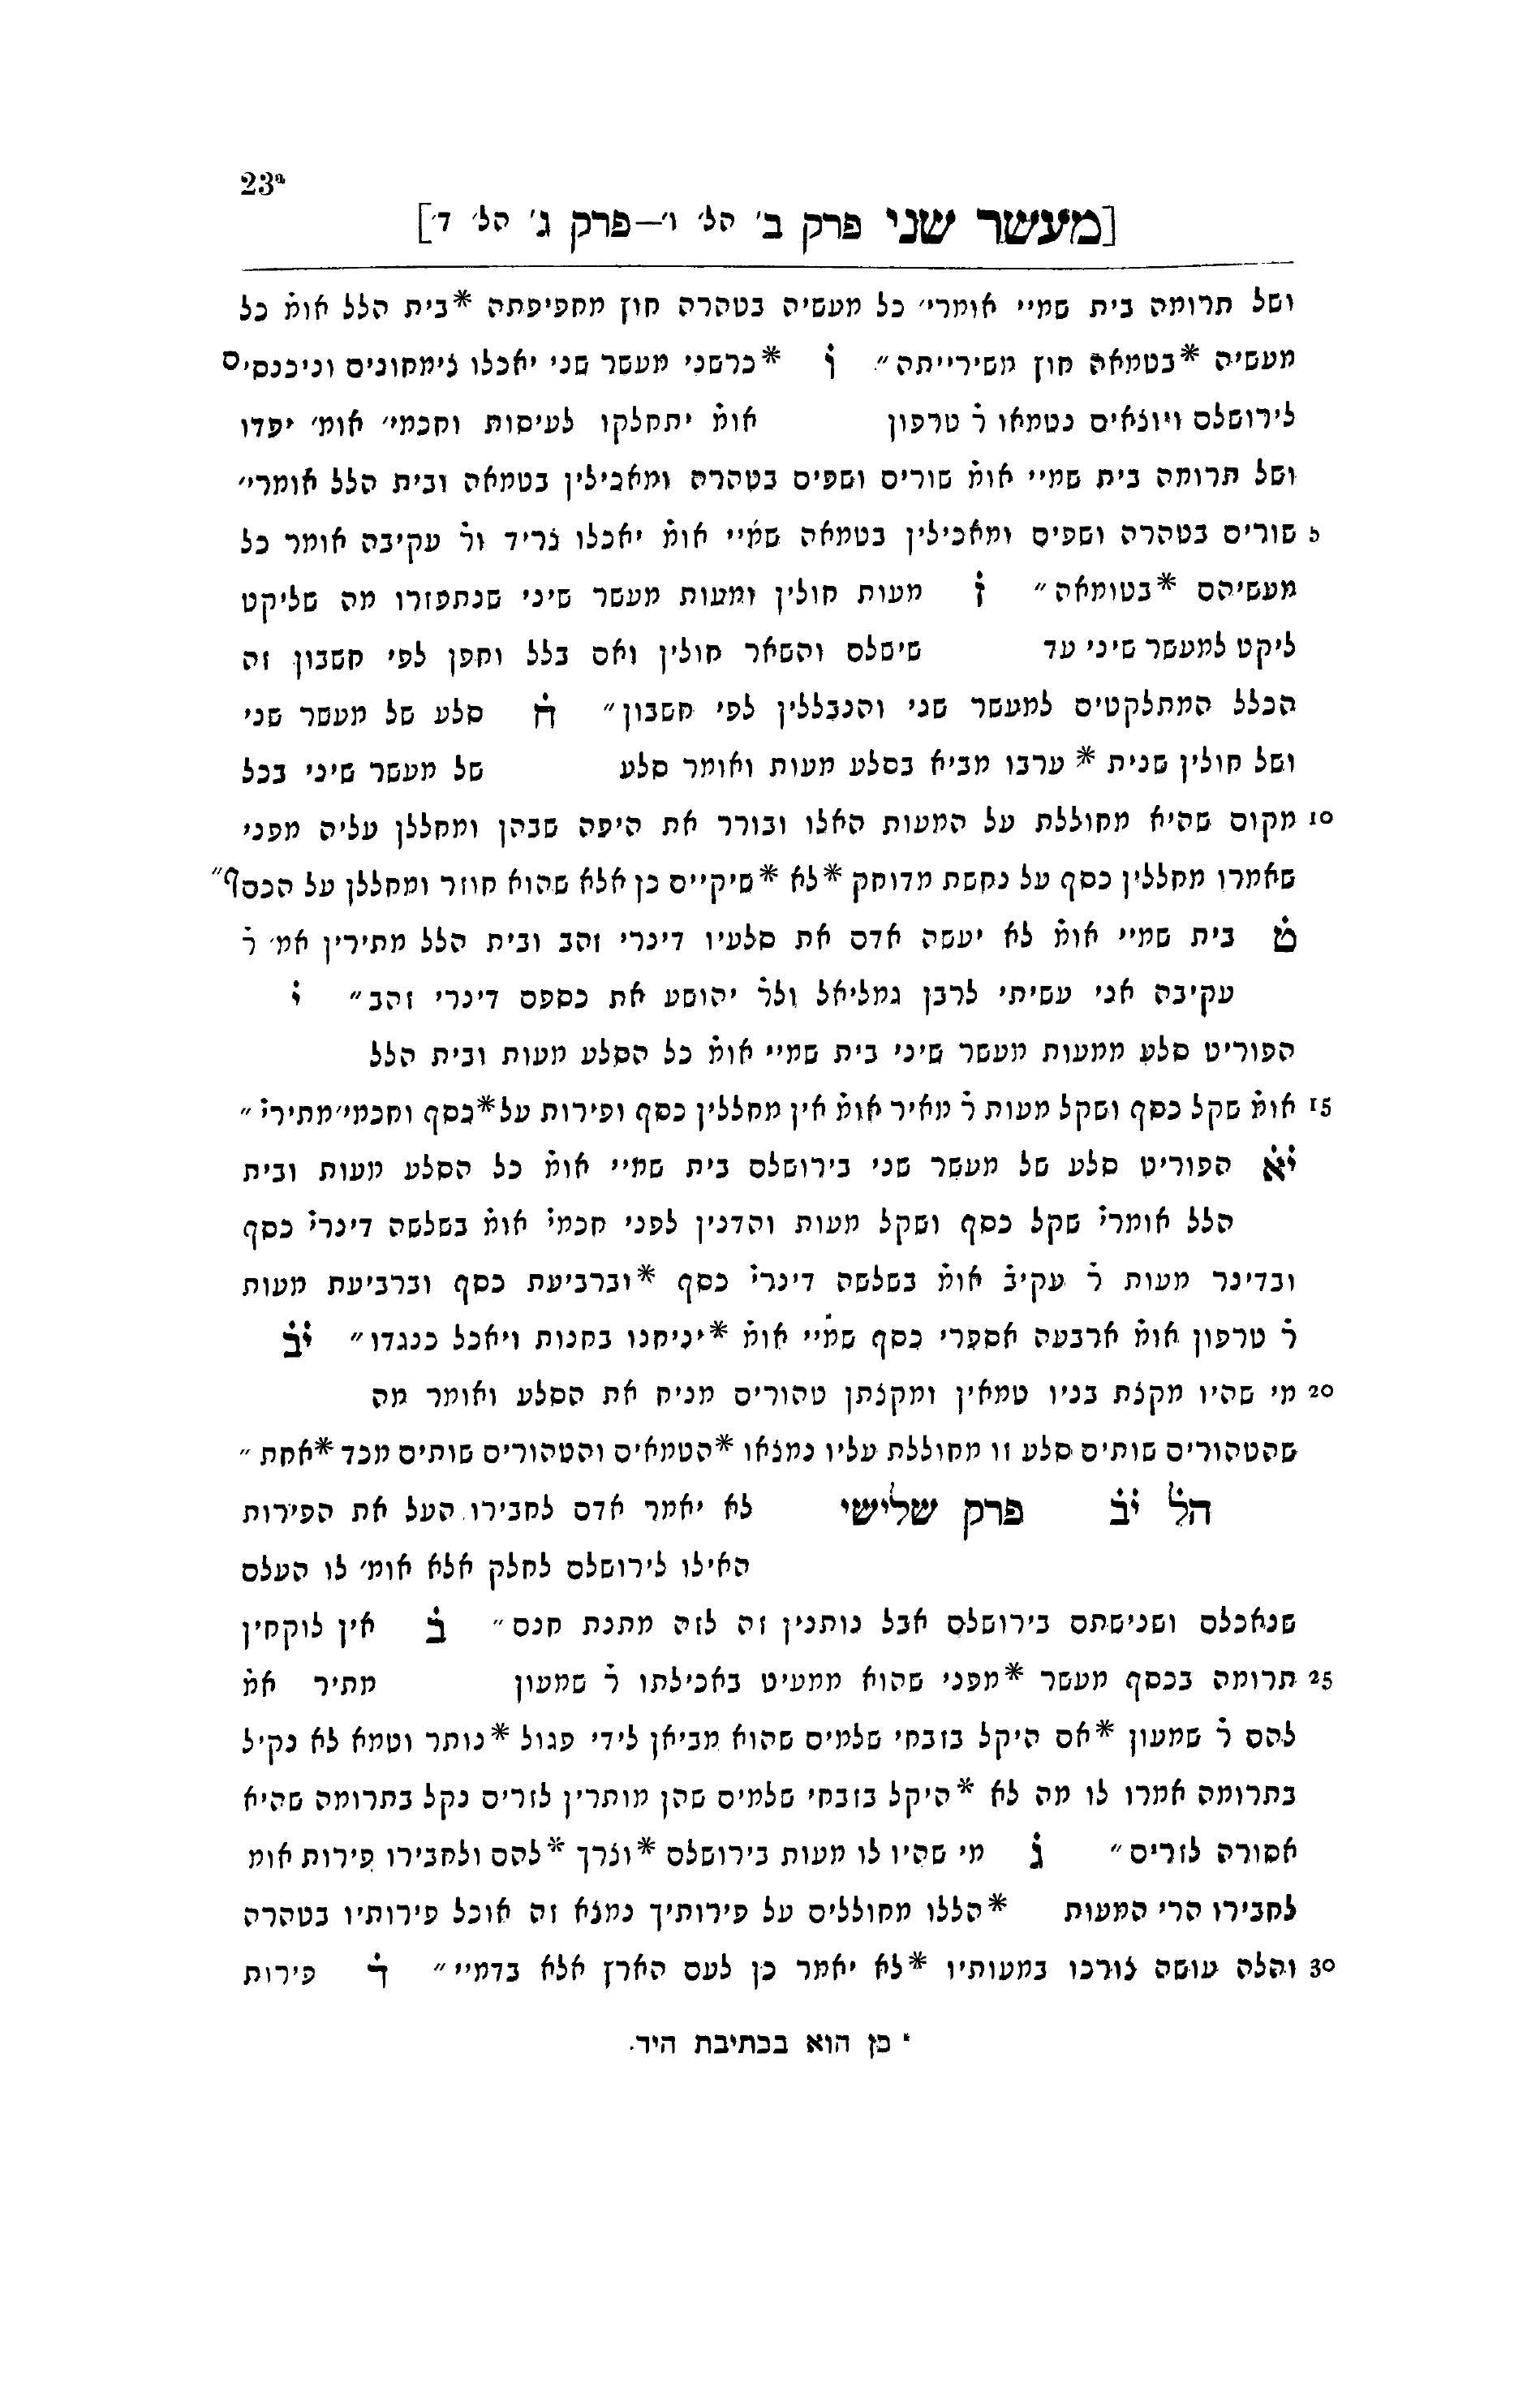 23ª
[מעשר שני פרק ב׳ הל׳ ו׳—פרק ג׳ הל׳ ד׳]
ושל תרומה בית שמיי אומרי׳ כל מעשיה בטהרה חוץ מחפיפתה *בית הלל אומ̇ כל
מעשיה *בטמאה חוץ משירייתה״ ו̇ *כרשני מעשר שני יאכלו צימחונים וניכנסי׳ם
לירושלם ויוצאים נטמאו ר̇ טרפון אומ̇ יתחלקו לעיסות וחכמי׳ אומ׳ יפדו
ושל תרומה בית שמיי אומ̇ שורים ושפים בטהרה ומאכילין בטמאה ובית הלל אומרי׳
5 שורים בטהרה ושפים ומאכילין בטמאה שמ̇יי אומ̇ יאכלו צריד ור̇ עקיבה אומר כל
מעשיהם *בטומאה״ ז̇ מעות חולין ומעות מעשר שיני שנתפזרו מה שליקט
ליקט למעשר שיני עד שישלם והשאר חולין ואם בלל וחפן לפי חשבון זה
הכלל המתלקטים למעשר שני והנבללין לפי חשבון״ ח̇ סלע של מעשר שני
ושל חולין שנית * ערבו מביא בסלע מעות ואומר סלע של מעשר שיני בכל
10 מקום שהיא מחוללת על המעות האלו ובורר את היפה שבהן ומחללן עליה מפני
שאמרו מחללין כסף על נחשת מדוחק *לא *שיקיים כן אלא שהוא חוזר ומחללן על הכסף״
ט̇ בית שמיי אומ̇ לא יעשה אדם את סלעיו דינרי זהב ובית הלל מתירין אמ׳ ר̇
עקיבה אני עשיתי לרבן גמליאל ולר̇ יהושע את כספם דינרי זהב״ י̇
הפוריט סלע ממעות מעשר שיני בית שמיי אומ̇ כל הסלע מעות ובית הלל
15 אומ̇ שקל כסף ושקל מעות ר̇ מאיר אומ̇ אין מחללין כסף ופירות על*כסף וחכמי׳מתירי̇״
יא̇ הפוריט סלע של מעשר שני בירושלם בית שמיי אומ̇ כל הסלע מעות ובית
הלל אומרי̇ שקל כסף ושקל מעות והדנין לפני חכמי̇ אומ̇ בשלשה דינרי̇ כסף
ובדינר מעות ר̇ עקיב̇ אומ̇ בשלשה דינרי̇ כסף *וברביעת כסף וברביעת מעות
ר̇ טרפון אומ̇ ארבעה אספרי כסף שמ̇יי אומ̇ *יניחנו בחנות ויאכל כנגדו״ יב̇
20 מי שהיו מקצת בניו טמאין ומקצתן טהורים מניח את הסלע ואומר מה
שהטהורים שותים סלע זו מחוללת עליו נמצאו *הטמאים והטהורים שותים מכד *אחת״
הל̇ יב̇ פרק שלישי לא יאמר אדם לחבירו העל את הפירות
האילו לירושלם לחלק אלא אומ׳ לו העלם
שנאכלם ושנישתם בירושלם אבל נותנין זה לזה מתנת חנם״ ב̇ אין לוקחין
25 תרומה בכסף מעשר *מפני שהוא ממעיט באכילתו ר̇ שמעון מתיר אמ̇
להם ר̇ שמעון *אם היקל בזבחי שלמים שהוא מביאן לידי פגול *נותר וטמא לא נקיל
בתרומה אמרו לו מה לא *היקל בזבחי שלמים שהן מותרין לזרים נקל בתרומה שהיא
אסורה לזרים״ ג̇ מי שהיו לו מעות בירושלם *וצרך *להם ולחבירו פירות אומ
לחבירו הרי המעות *הללו מחוללים על פירותיך נמצא זה אוכל פירותיו בטהרה
30 והלה עושה צורכו במעותיו *לא יאמר כן לעם הארץ אלא בדמיי״ ד̇ פירות
* כן הוא בכתיבת היד.